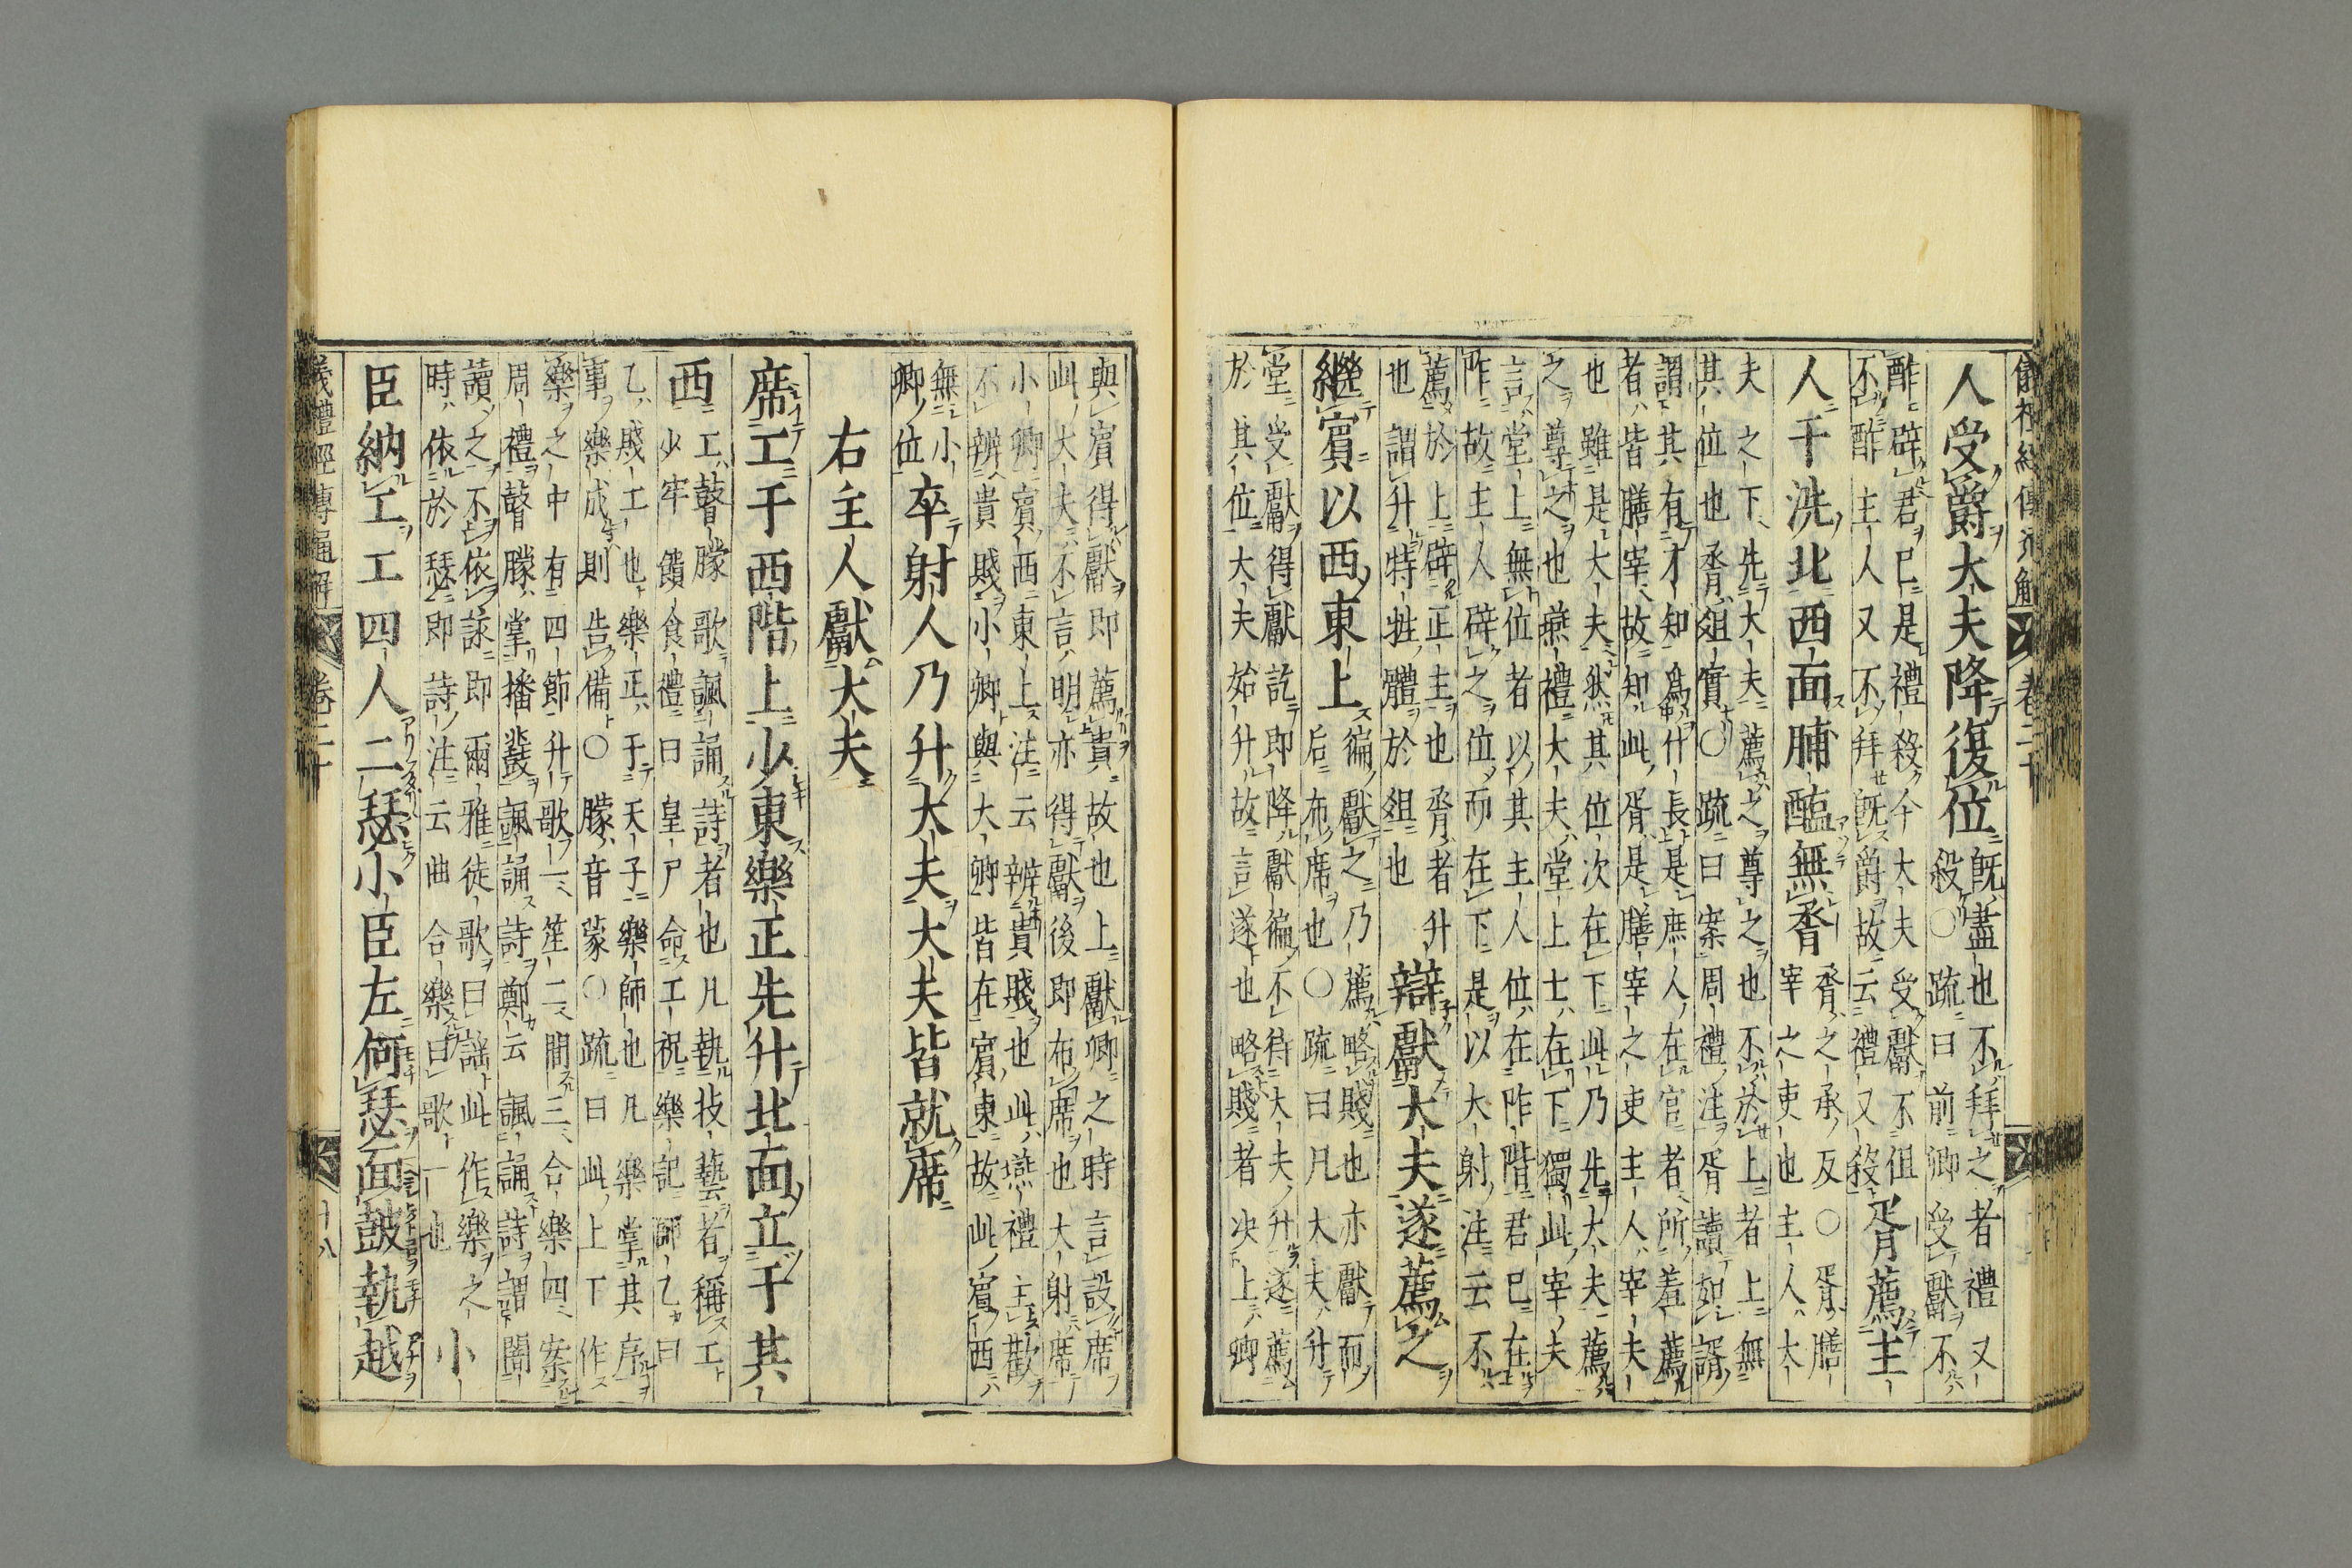 儀禮經傳通解 卷二十
人受爵大夫降復位既盡也不拜之者禮又
殺〇疏曰前卿受獻不
酢辟君已是禮殺今大夫受獻不但
不酢主人又不拜既爵故云禮又殺
胥薦主
人于洗北西面脯醢無脀
脀之承反〇胥膳
宰之吏也主人大
夫之下先大夫薦之尊之也不於上者上無
其位也脀俎實〇疏曰案周禮注胥讀如諝
謂其有才知爲什長是庶人在官者所羞薦
者皆膳宰故知此胥是膳宰之吏主人宰夫
也雖是大夫然其位次在下此乃先大夫薦
之尊之也燕禮大夫堂上士在下獨此宰夫
言堂上無位者以其主人位在阼階君已在
阼故主人辟之位而在下是以大射注云不
薦於上辟正主也脀者升
也謂升特牲體於俎也
辯獻大夫遂薦之
繼賓以西東上
徧獻之乃薦略賤也亦獻而
后布席也〇疏曰凡大夫升
堂受獻得獻訖即降獻徧不待大夫升遂薦
於其位大夫始升故言遂也略賤者决上卿
與賓得獻即薦貴故也上獻卿之時言設席
此大夫不言明亦得獻後即布席也大射席
小卿賓西東上注云辨貴賤也此燕禮主歡
不辨貴賤小卿與大卿皆在賓東故此賓西
無小
卿位
卒射人乃升大夫大夫皆就席
右主人獻大夫
席工于西階上少東樂正先升北面立于其
西
工瞽矇歌諷誦詩者也凡執技藝者稱工
少牢饋食禮曰皇尸命工祝樂記師乙曰
乙賤工也樂正于天子樂師也凡樂掌其序
事樂成則告備〇矇音蒙〇疏曰此上下作
樂之中有四節升歌一笙二間三合樂四案
周禮瞽矇掌播鼗諷誦詩鄭云諷誦詩謂闇
讀之不依詠即爾雅徒歌曰謡此作樂之
時依於瑟即詩注云曲合樂曰歌一也
小
臣納工工四人二瑟小臣左何瑟面鼓執越
儀禮經傳通解 卷二十 十八